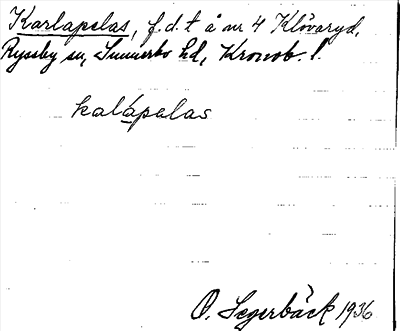 Karlapelas, f.d.t å nr 4 Klövaryd,
Ryssby sn, Sunnerbo hd, Kronob. l.
kalápelas
O. Segerbäck 1936